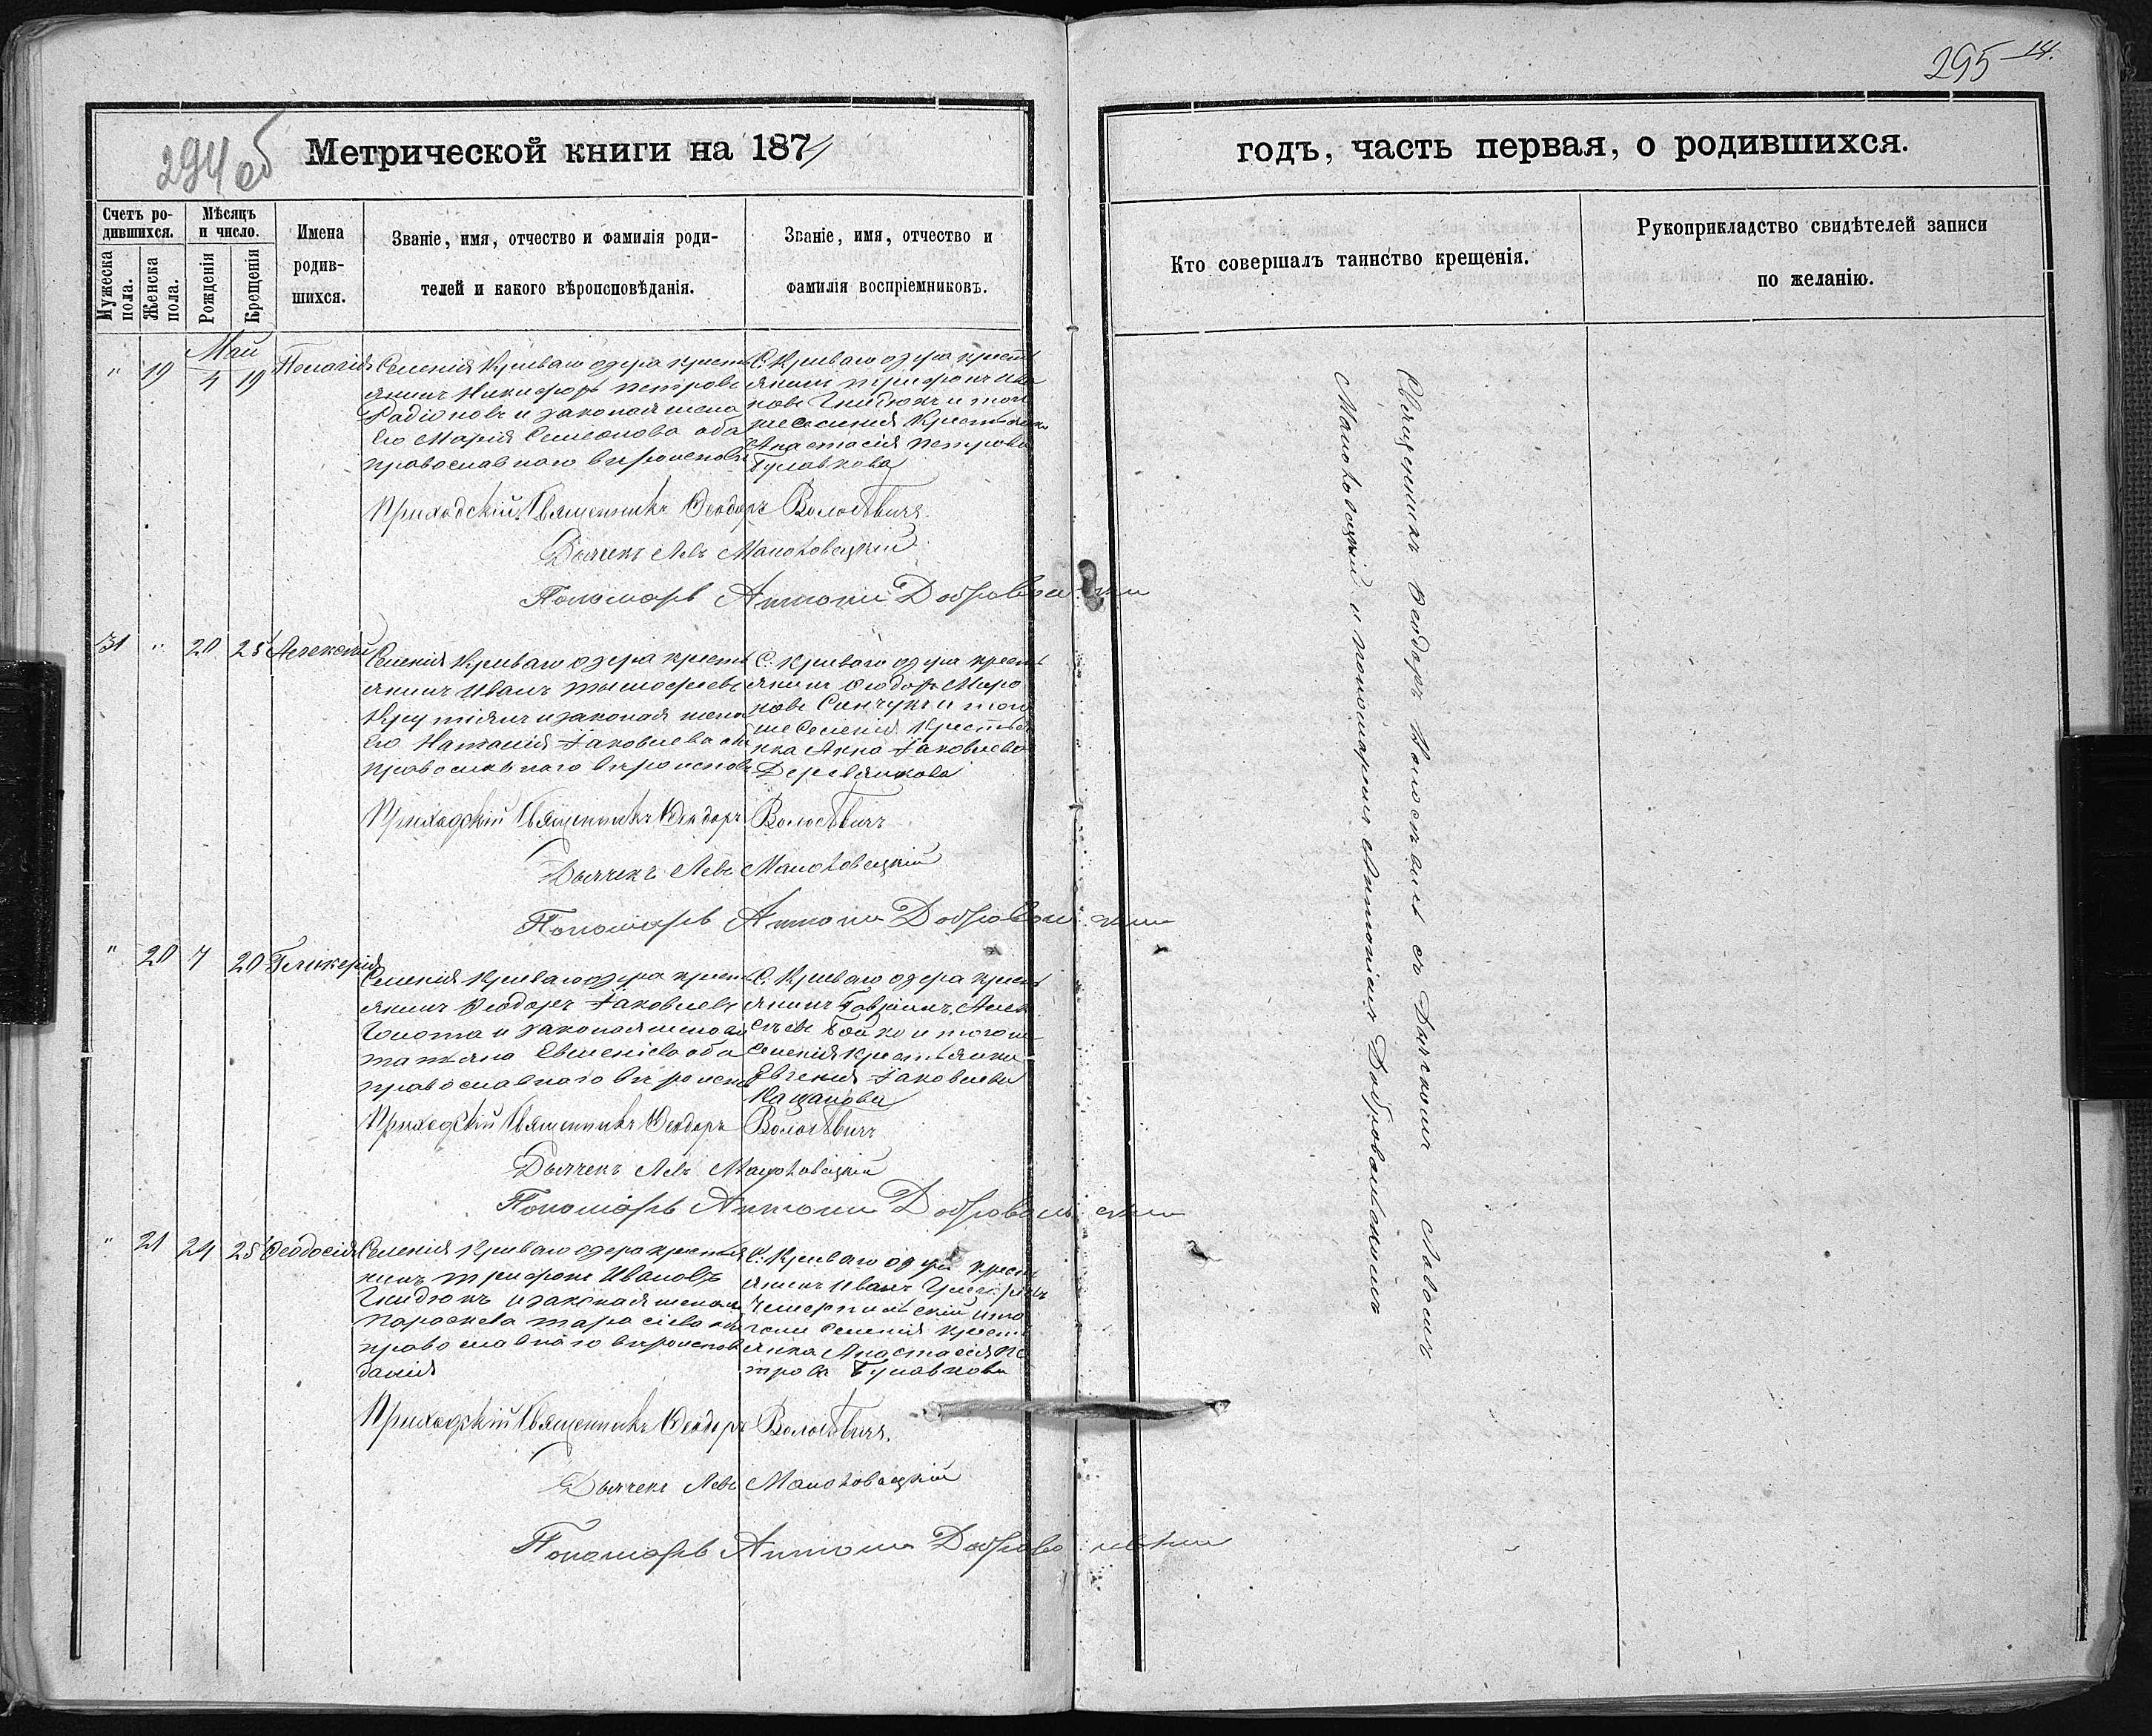 295 14.
294 об
Метрической книги на 1874
годъ, часть первая, о родившихся.
Счетъ ро-
дившихся.
Мужеска
пола.
Женска
пола.
Мѣсяцъ
и число.
Рожденія
Крещенія
Имена
родив-
шихся.
Званіе, имя, отчество и фамилія роди-
телей и какого вѣроисповѣданія.
Званіе, имя, отчество и
фамилія воспріемниковъ.
Кто совершалъ таинство крещенія.
Рукоприкладство свидѣтелей записи
по желанію.
Май
" 19 4 19 Пелагія
Селенія Криваго озера кресть
янинъ Никифоръ Петровъ
Радіоновъ и законая жена
Его Марія Симеонова оба
православнаго вѣроисповѣ
С. Криваго озера кресть
янинъ Трифонъ Ива
новъ Гнидюкъ и того
же селенія Крестьянка
Анастасія Петрова
Булавкова
Приходскій Священникъ Ѳеодоръ Волосѣвичъ.
Дьячекъ Левъ Маноховецкій
Пономарь Антоній Добровольскій
31 " 20 25 Алексѣй
Селенія Криваго озера кресть
янинъ Иванъ Тимофеевъ
и законая жена
Его Наталія Іаковлева оба
православнаго вѣроисповѣ
С. Криваго озера кресть
янинъ Ѳеодоръ Миро
новъ и того
же Селенія Крестья
нка Анна Іаковлева
Деревянкова
Приходскій Священникъ Ѳеодоръ Волосѣвичъ
Дьячекъ Левъ Маноховецкій
Пономарь Антоній Добровольскій
" 20 7 20 Гликерія
Селенія Криваго озера кресть
янинъ Ѳеодоръ Іаковлевъ
Голота и законая жена его
Татьяна Евгеніева оба
православнаго вѣроиспов
С. Криваго озера кресть
янинъ Гавріилъ Алек
сѣевъ Бойко и того же
Селенія крестьянка
Евгенія Іаковлева
Кацапова
Приходскій Священникъ Ѳеодоръ Волосѣвичъ
Дьячекъ Левъ Маноховецкій
Пономарь Антоній Добровольскій
" 21 24 25 Ѳеодосія
Селенія Криваго озера крестья
нинъ Трифонъ Ивановъ
Гнидюкъ и законая жена его
Параскева Тарасіева оба
православнаго вѣроисповѣ
данія
С. Криваго озера кресть
янинъ Иванъ Григорьевъ
Чемерпильскій и то
гоже Селенія кресть
янка Анастасія Пе
трова Булавкова
Приходскій Священникъ Ѳеодоръ Волосѣвичъ.
Дьячекъ Левъ Маноховецкій
Пономарь Антоній Добровольскій
Священникъ Ѳеодоръ Волосѣвичъ съ Дьячкомъ Львомъ
Маноховецкій и пономаремъ Антоніемъ Добровольскимъ